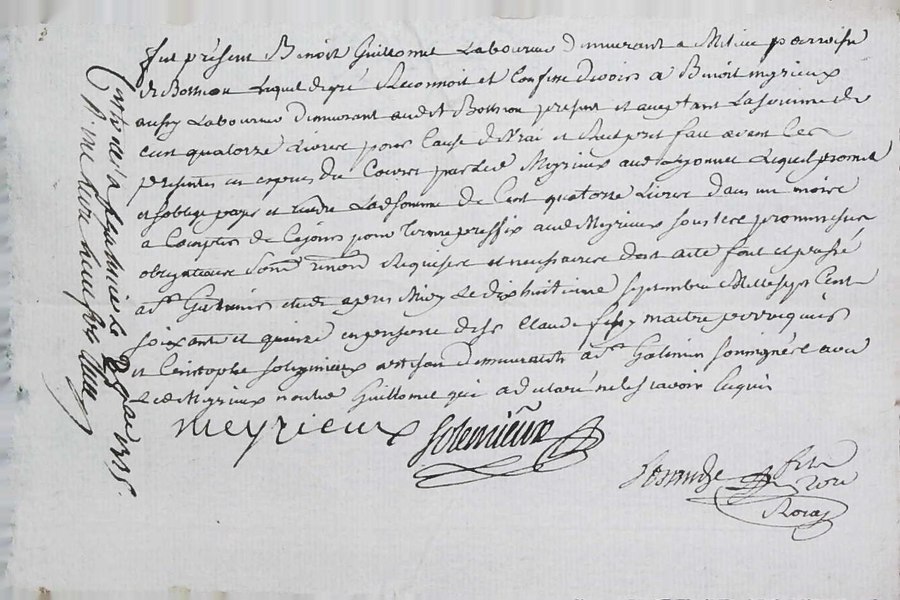 fut présent Benoit Guillomet Laboureur demeurant a Milieu parroisse
de Boission Lequel de gré Reconnoit et Confesse devoir a Benoit meyrieux
aussy Laboureur demeurant audit Boission present et acceptant La somme de
cent quatorze Livres pour Cause de vrai et Juste prest fait avant Les
presentes en especes du Cours par Led Meyrieux aud Guillomet Lequel promet
et soblige payer et rendre Lad somme de Cent quatorze Livres dans un mois
a Compter de Ce jour pour terme preffix aud Meyrieux sous les promissions
obligations soum renon Requises et necessaires dont acte fait et passé
a St Galmier etude apres midy Le dix huitieme septembre Mille sept Cent
soixante et quinze en presence de Sr Claude maitre perruquier
et Cristophe Solemieux artisan demeurants a St Galmier soussignés avec
Led Meyrieux non led Guillomet qui a declaré ne le scavoir Enquis
meyrieux Solemieux
Not
Roial
Controlé a St Galmier Le 1775
R une livre neuf sols